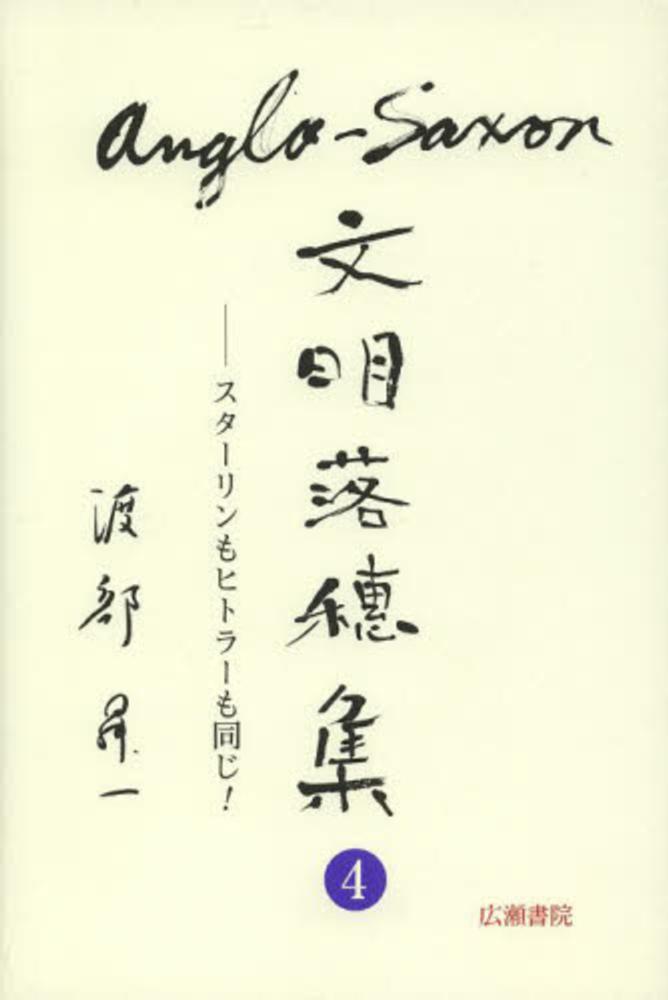 Anglo-Saxon
文明落穂集
——スターリンもヒトラーも同じ!
渡部昇一
4
広瀬書院